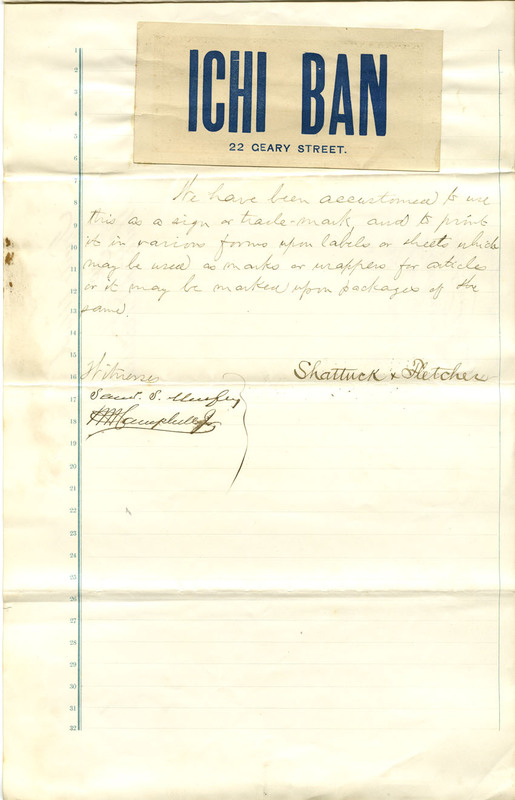 ICHI BAN
22 GEARY STREET.
1
2
3
4
5
6
7
8
9
10
11
12
13
14
15
16
17
18
19
20
21
22
23
24
25
26
27
28
29
30
31
32
We have been accustomed to use
this as a sign or trade-mark and to print
it in various forms upon labels or sheets which
may be used as marks or wrappers for articles
or it may be marked upon packages of the
same.
Witnesses
Shattuck & Fletcher
S.